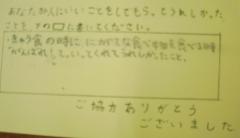 あなたが人にいいことをしてもらってうれしかった
ことを下の□に書いてください。
・きゅう食の時に、にがてな食べ物を食べる時
"がんばれ"して、いってくれてうれしかったこと。
ご協力ありがとう
ございました